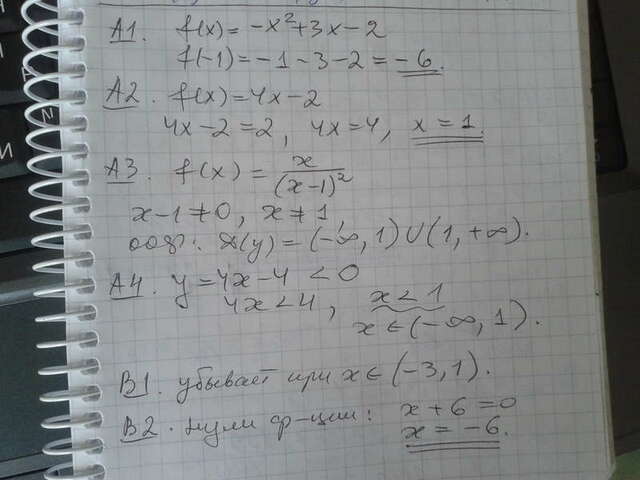 A1. f(x)=-x²+3x-2
f(-1)=-1-3-2=-6.
A2. f(x)=4x-2
4x-2=2, 4x=4, x=1.
A3. f(x)=x/(x-1)²
x-1≠0, x≠1,
D(y)=(-∞,1)∪(1,+∞).
A4. y=4x-4<0
4x<4, x<1
x∈(-∞,1).
B1. убывает при x∈(-3,1).
B2. нули ф-ции: x+6=0
x=-6.